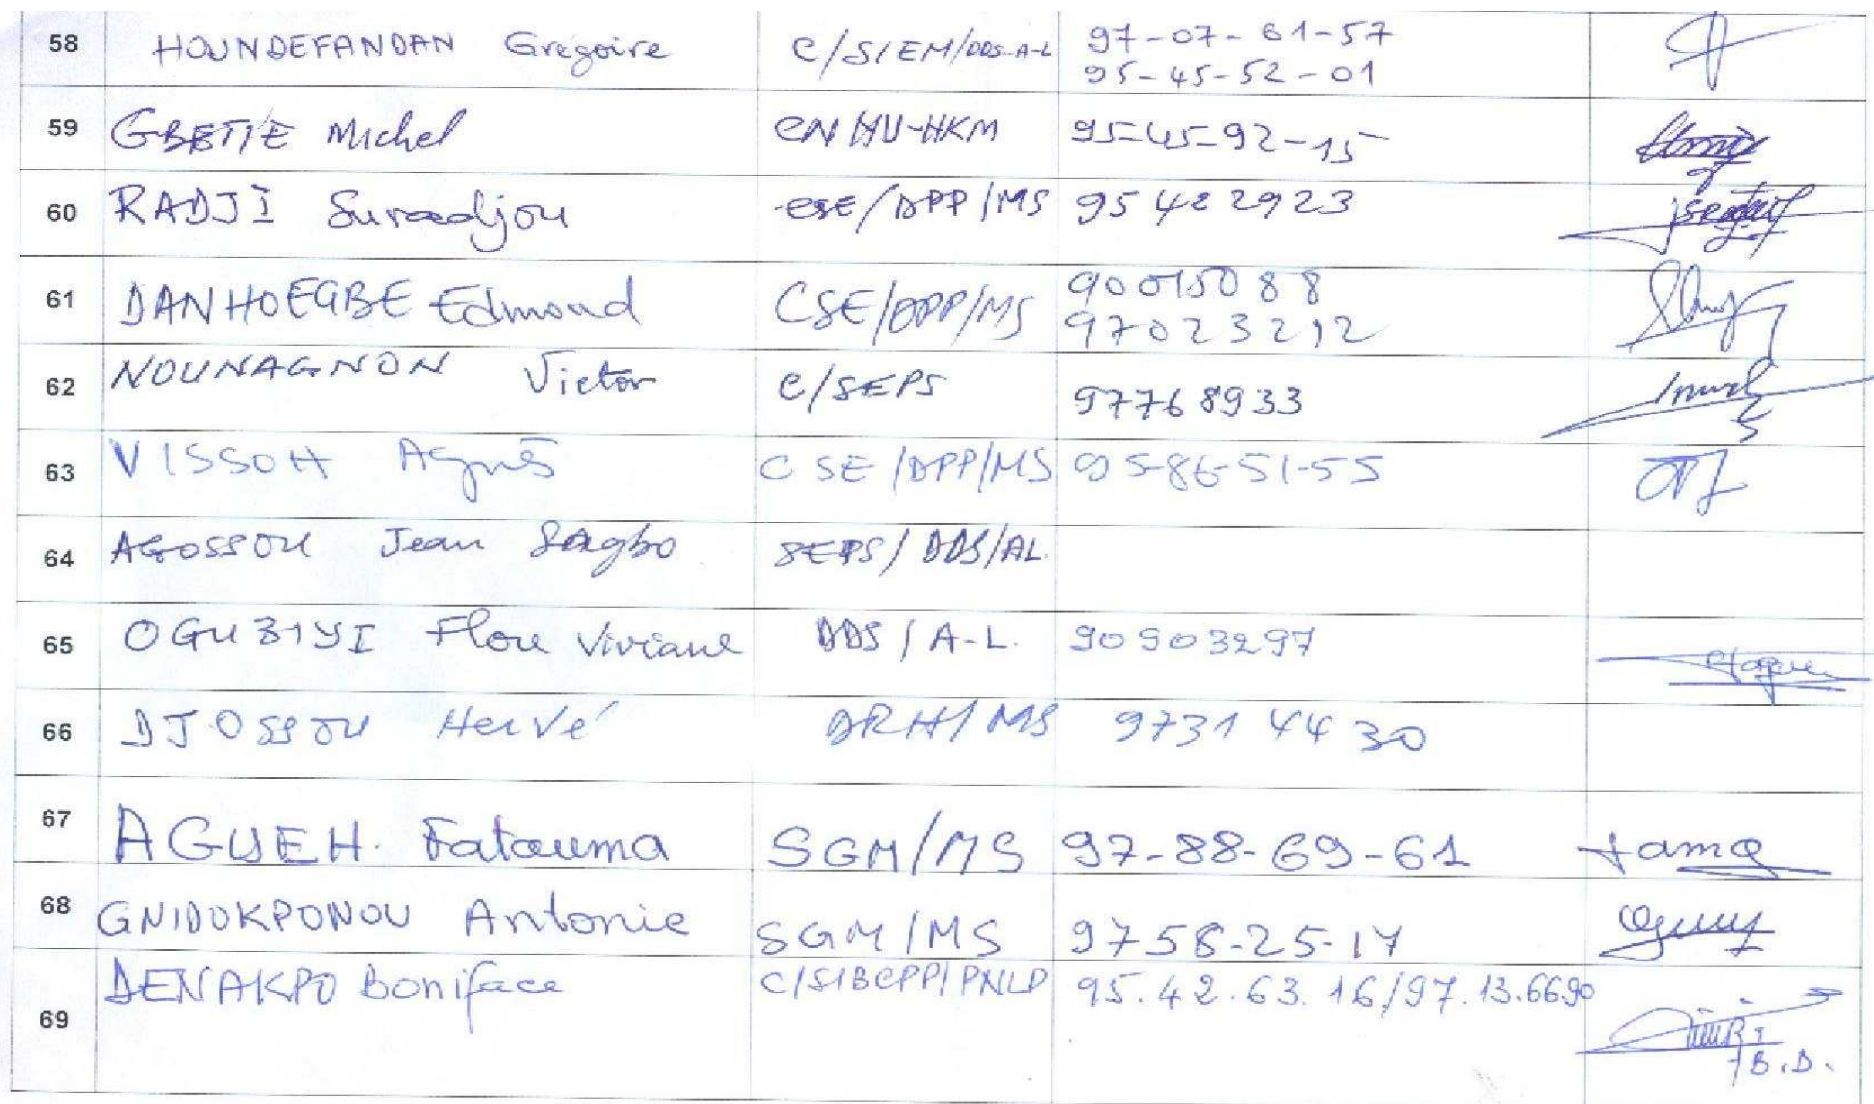 58 HOUNDEFANDAN Grégoire C/SIEM/DDS-A-L 97-07-61-57
95-45-52-01
59 GBETIE Michel CNHU-HKM 95-45-92-15
60 RADJI Suradjou CSE/DPP/MS 95 42 29 23
61 DANHOEGBE Edmond CSE/DPP/MS 90015088
97023212
62 NOUNAGNON Victor C/SEPS 97768933
63 VISSOH Agnès CSE/DPP/MS 95-86-51-55
64 AGOSSOU Jean Sagbo SEPS/DDS/AL
65 OGUBIYI Flore Viviane DDS/A-L. 90903297
66 DJOSSOU Hervé DRH/MS 9731 44 30
67 AGUEH. Fatouma SGM/MS 97-88-69-61
68 GNIDOKPONOU Antonie SGM/MS 9758-25-17
69 DENAKPO Boniface C/SIBCPP/PNLP 95.42.63.16/97.13.6690
B.D.